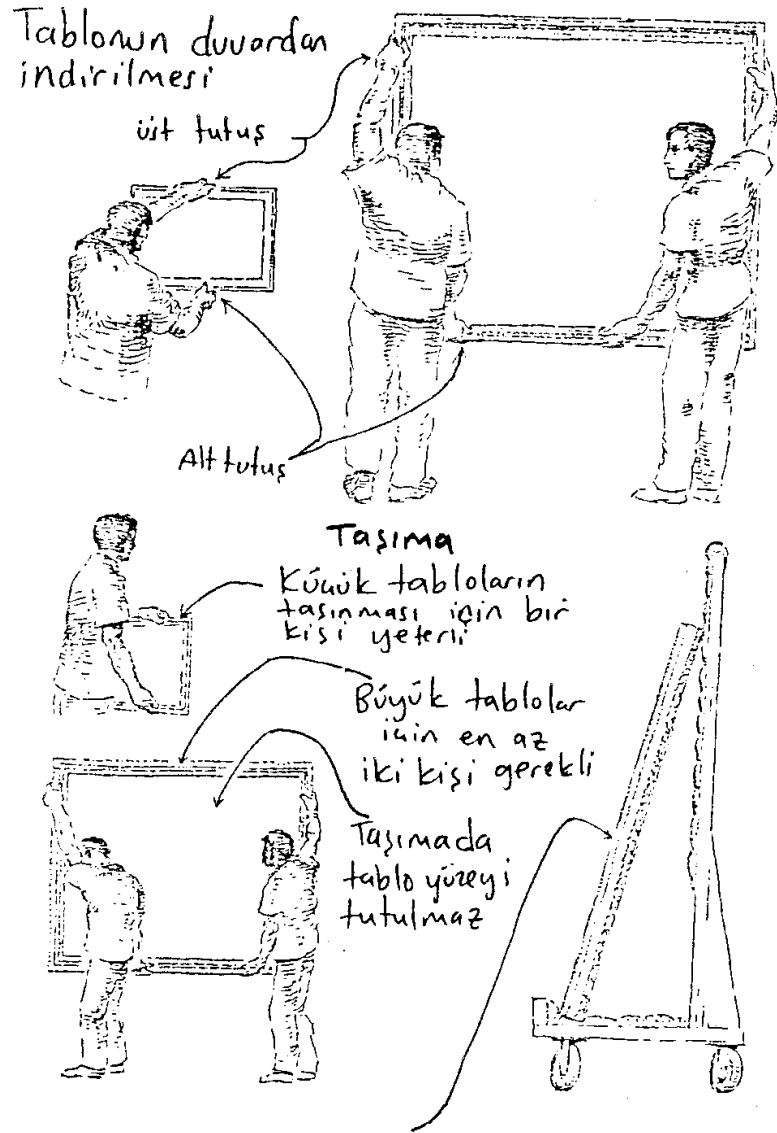 Tablonun duvardan
indirilmesi
üst tutuş
Alt tutuş
Taşıma
Küçük tabloların
taşınması için bir
kişi yeterli
Büyük tablolar
için en az
iki kişi gerekli
Taşımada
tablo yüzeyi
tutulmaz